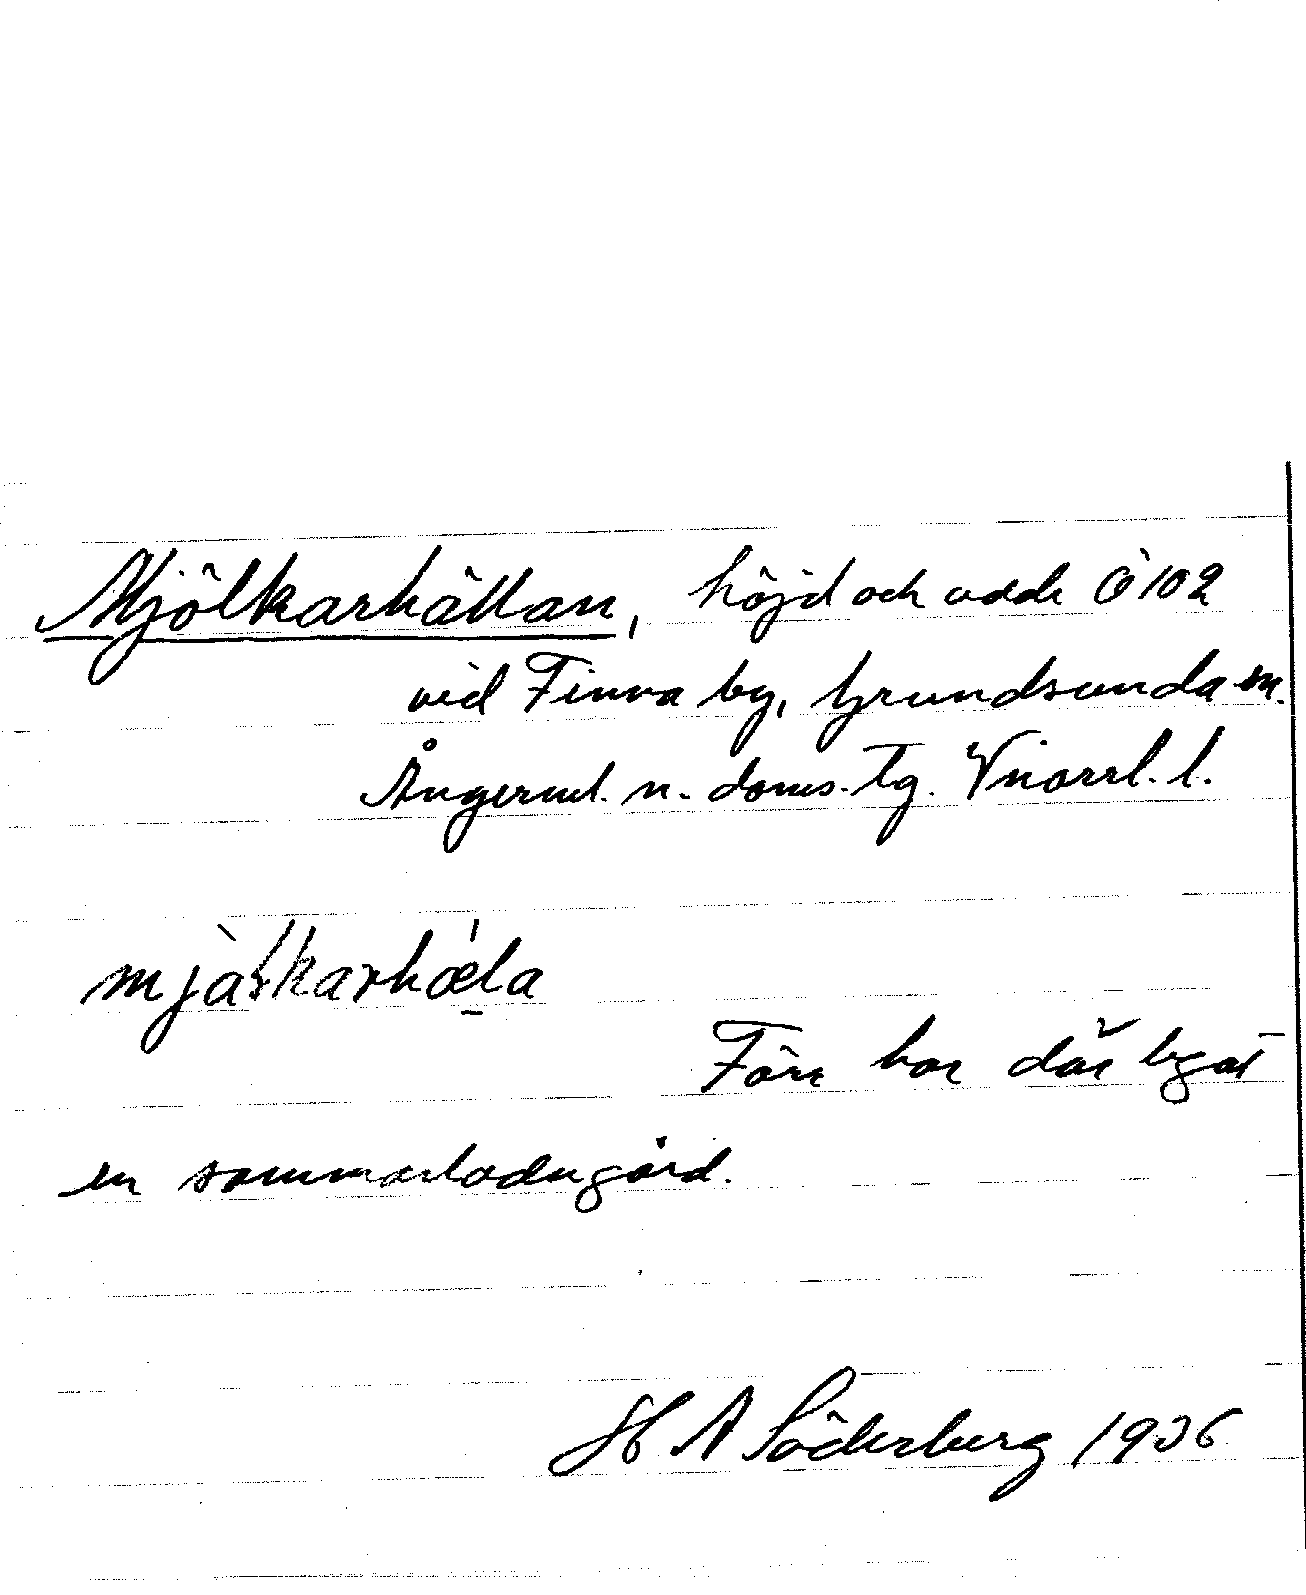 Mjölkarhällan, höjd och udde Ö 102
vid Finna by, Grundsunda sn.
Ångerml. n. doms. tg. Vnorrl. l.
Förr har där legat
en sommarladugård.
H A Söderberg 1936